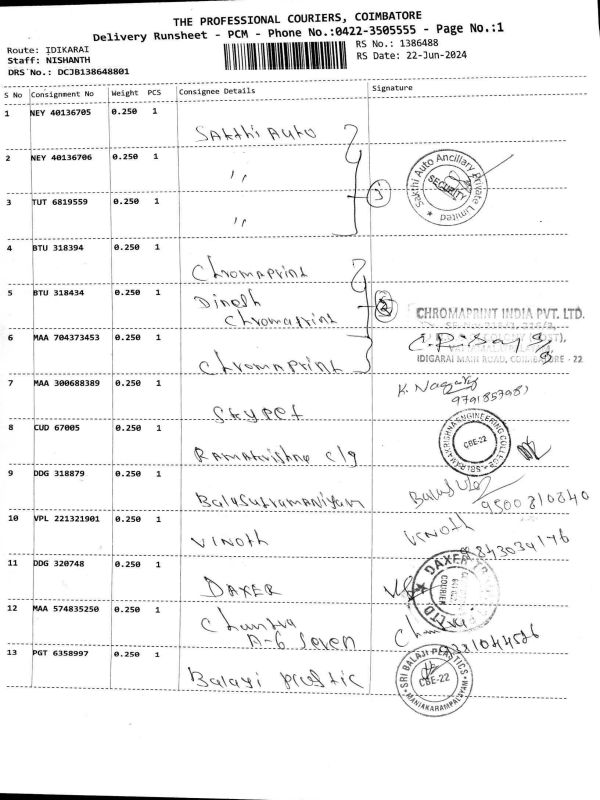 THE PROFESSIONAL COURIERS, COIMBATORE
Delivery Runsheet - PCM - Phone No.:0422-3505555 - Page No.:1
Route: IDIKARAI
RS No.: 1386488
Staff: NISHANTH
RS Date: 22-Jun-2024
DRS No.: DCJB138648801
S No Consignment No Weight PCS Consignee Details Signature
1 NEY 40136705 0.250 1
Sakthi Auto
2 NEY 40136706 0.250 1
Sakthi Auto Ancillary Private Limited ★
SECURITY
"
3 TUT 6819559 0.250 1
3
"
4 BTU 318394 0.250 1
Chromaprint
5 BTU 318434 0.250 1
Dinesh
Chromaprint
2
CHROMAPRINT INDIA PVT. LTD.
6 MAA 704373453 0.250 1
IDIGARAI MAIN ROAD, COIMBATORE - 22
Chromaprint
7 MAA 300688389 0.250 1
9791857981
8 CUD 67005 0.250 1
SRI RAMAKRISHNA ENGINEERING COLLEGE
CBE-22
Ramakrishna clg
9 DDG 318879 0.250 1
Balasubramaniyam
9500810840
10 VPL 221321901 0.250 1
Vinoth
Vinoth
9843034176
11 DDG 320748 0.250 1
DAXER
DAXER
COURIER
LTD.
12 MAA 574835250 0.250 1
A-6 Seven
13 PGT 6358997 0.250 1
SRI BALAJI PLASTICS
CBE-22
MANIAKARAMPALAYAM
Balayi plastic